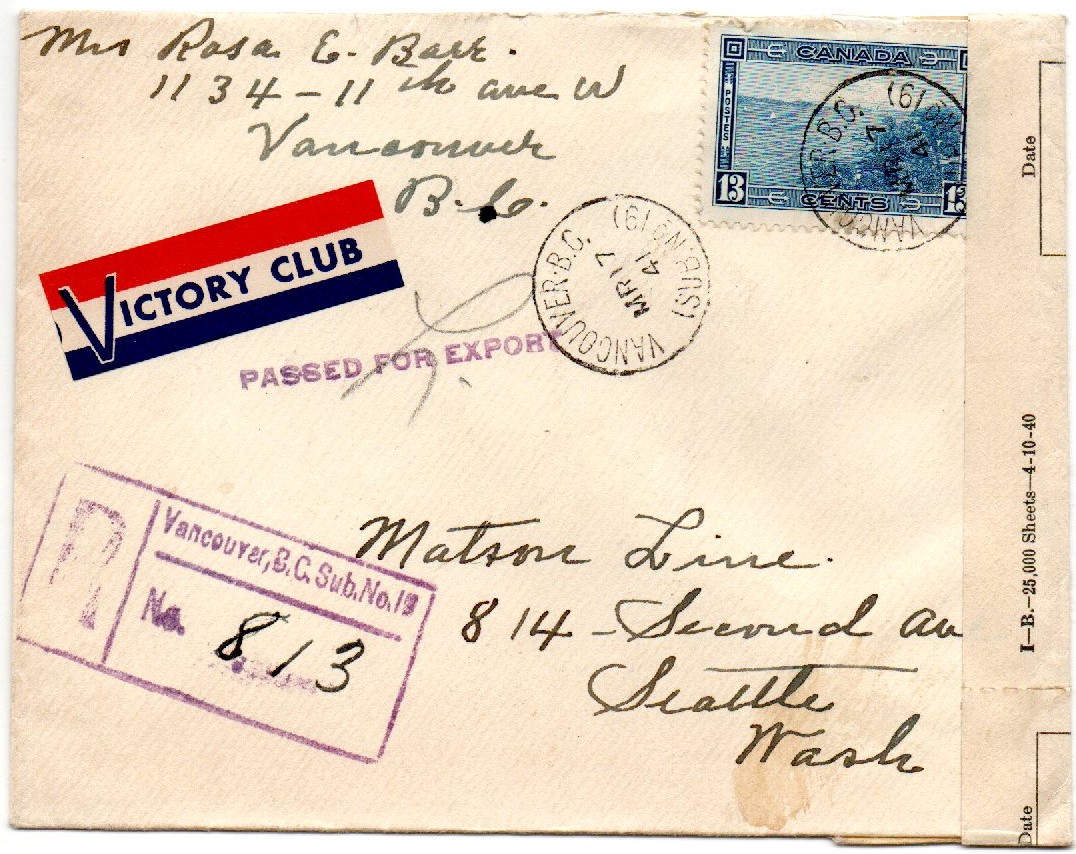 Mrs Rosa E. Barr.
1134 - 11th ave W
Vancouver
B.C.
CANADA
POSTES
13 CENTS 13
VANCOUVER. B.C.
MR 17
41
(SUB. No 19)
VICTORY CLUB
PASSED FOR EXPORT
VANCOUVER. B.C.
MR 17
41
(SUB. No 19)
R
Vancouver, B.C. Sub. No. 19
No. 813
Matson Line.
814 - Second Av
Seattle
Wash
Date
I—B.—25,000 Sheets—4-10-40
Date